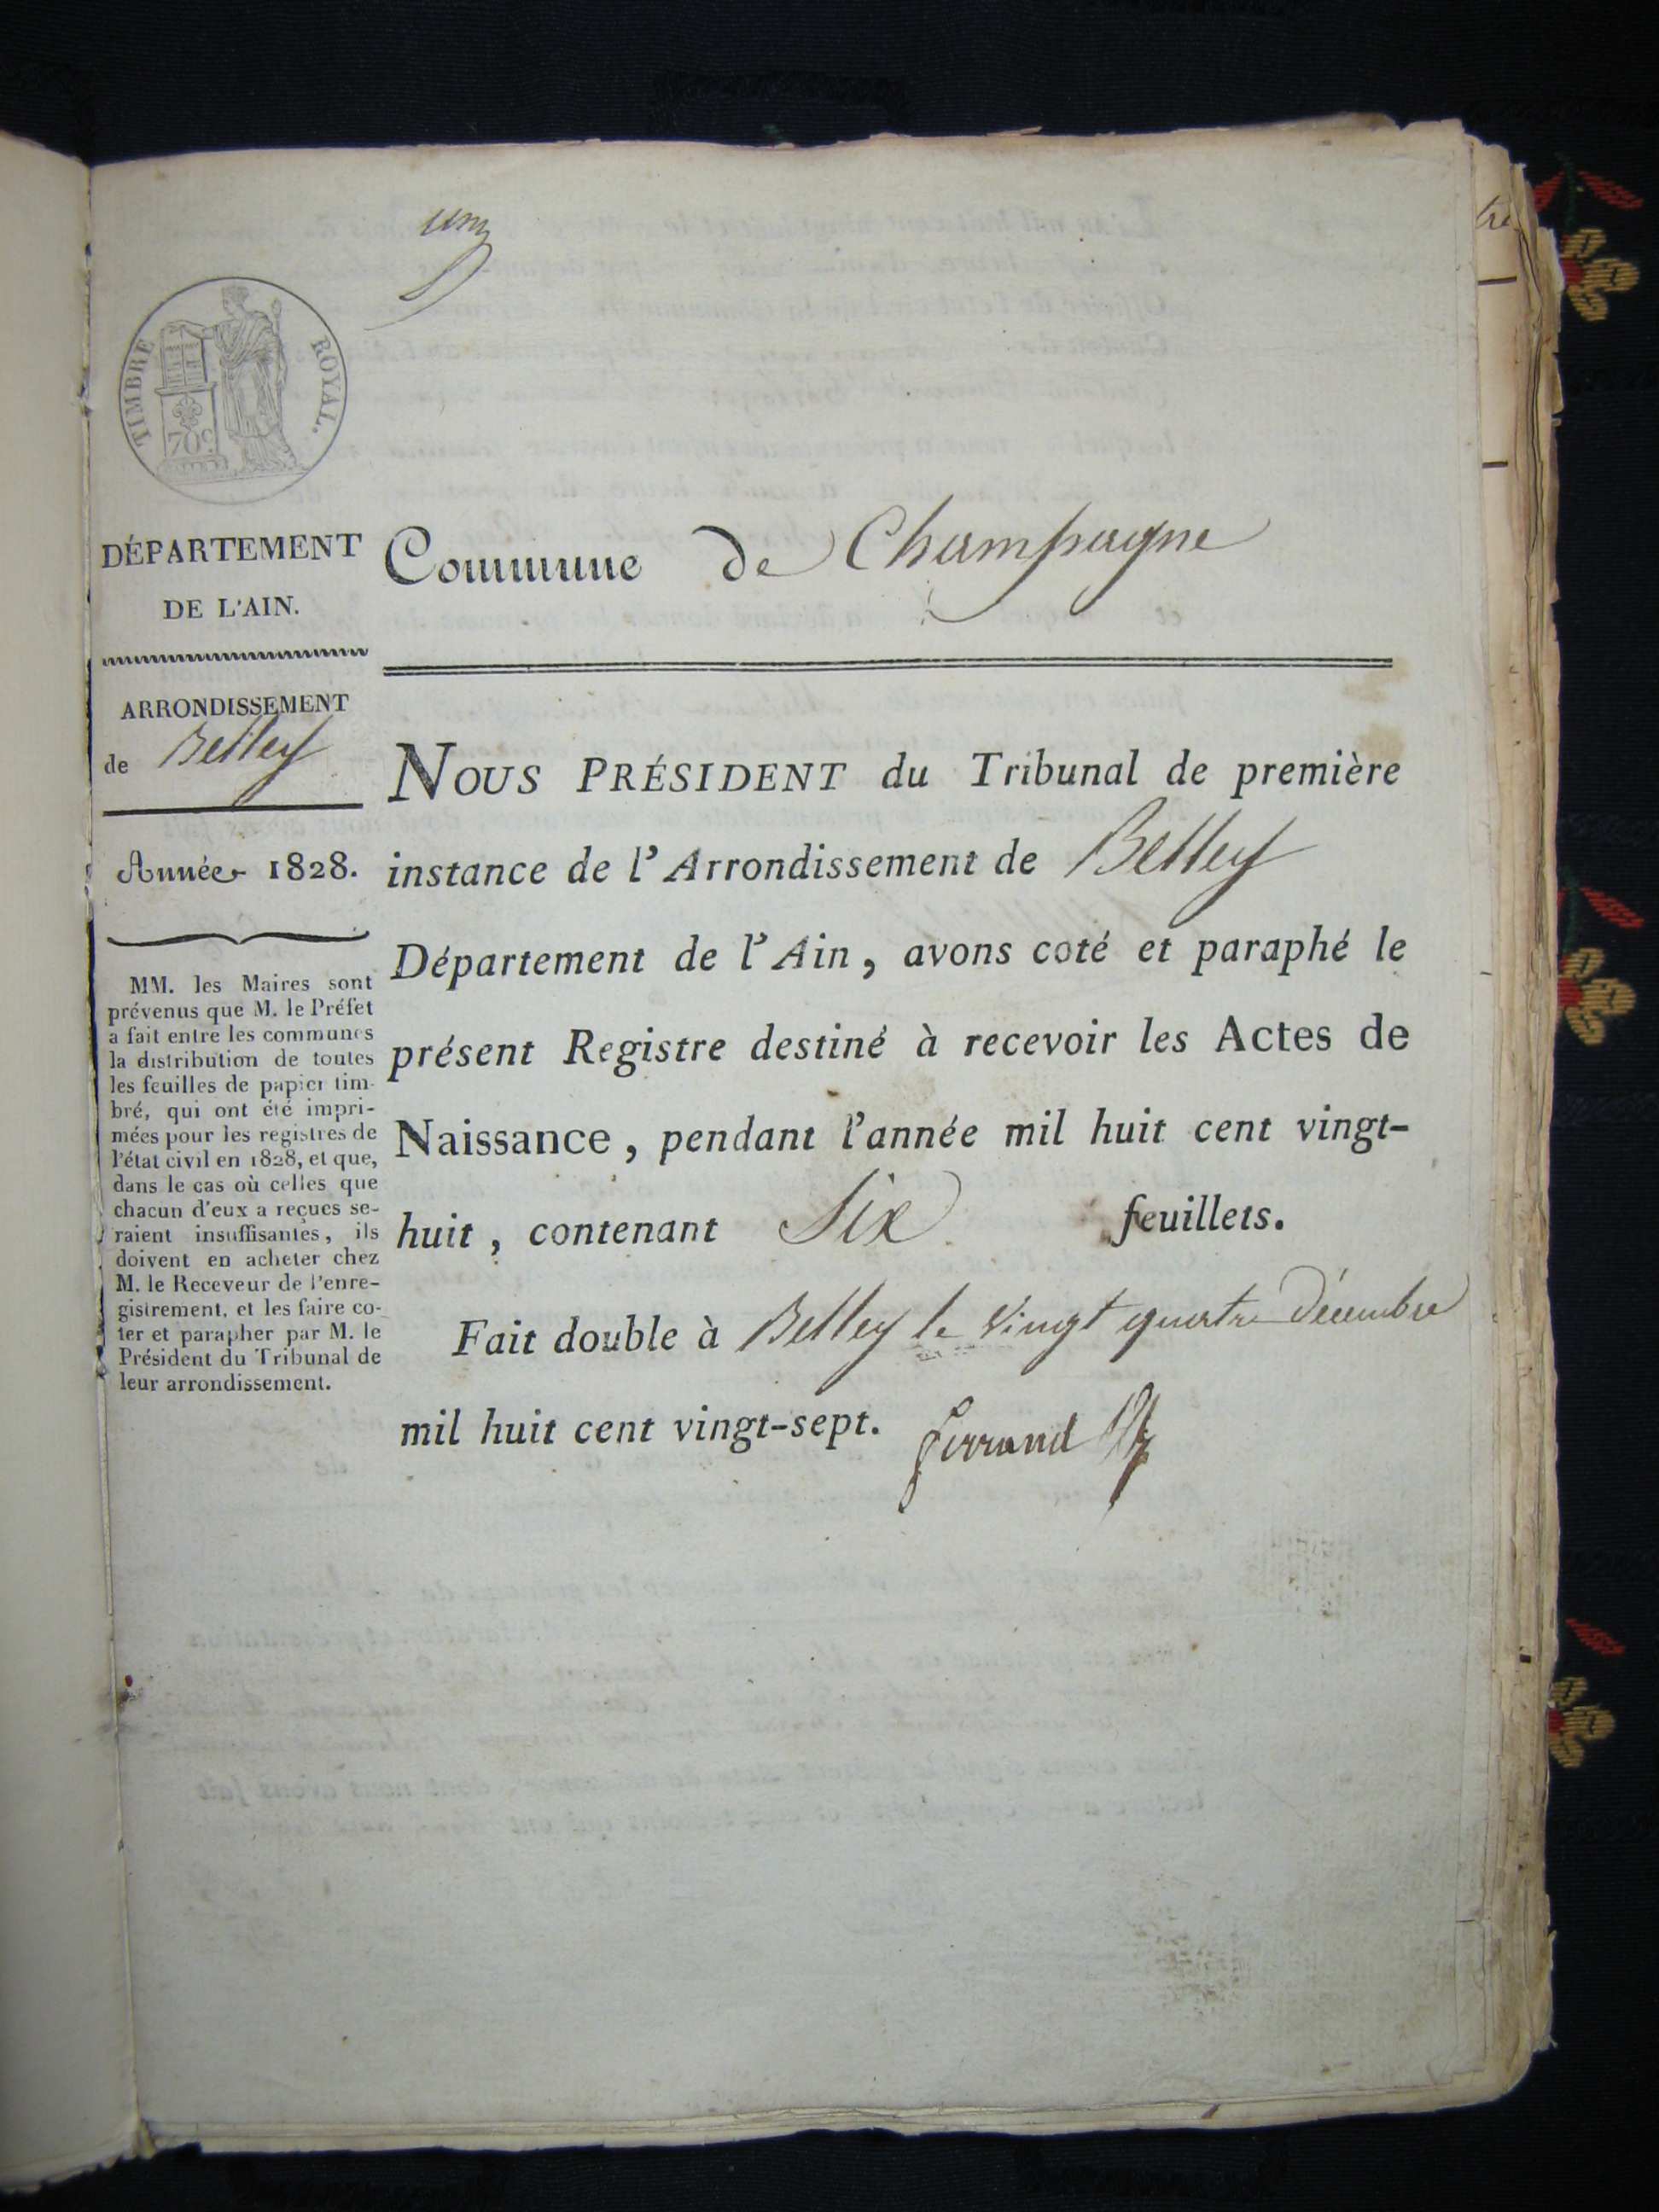 un
TIMBRE ROYAL.
70c
DÉPARTEMENT
DE L'AIN.
ARRONDISSEMENT
de Belley
Année 1828.
MM. les Maires sont
prévenus que M. le Préfet
a fait entre les communes
la distribution de toutes
les feuilles de papier tim-
bré, qui ont été impri-
mées pour les registres de
l'état civil en 1828, et que,
dans le cas où celles que
chacun d'eux a reçues se-
raient insuffisantes, ils
doivent en acheter chez
M. le Receveur de l'enre-
gistrement, et les faire co-
ter et parapher par M. le
Président du Tribunal de
leur arrondissement.
Commune de Champagne
NOUS PRÉSIDENT du Tribunal de première
instance de l'Arrondissement de Belley
Département de l'Ain, avons coté et paraphé le
présent Registre destiné à recevoir les Actes de
Naissance, pendant l'année mil huit cent vingt-
huit, contenant Six feuillets.
Fait double à Belley le vingt quatre Décembre
mil huit cent vingt-sept. ferrand